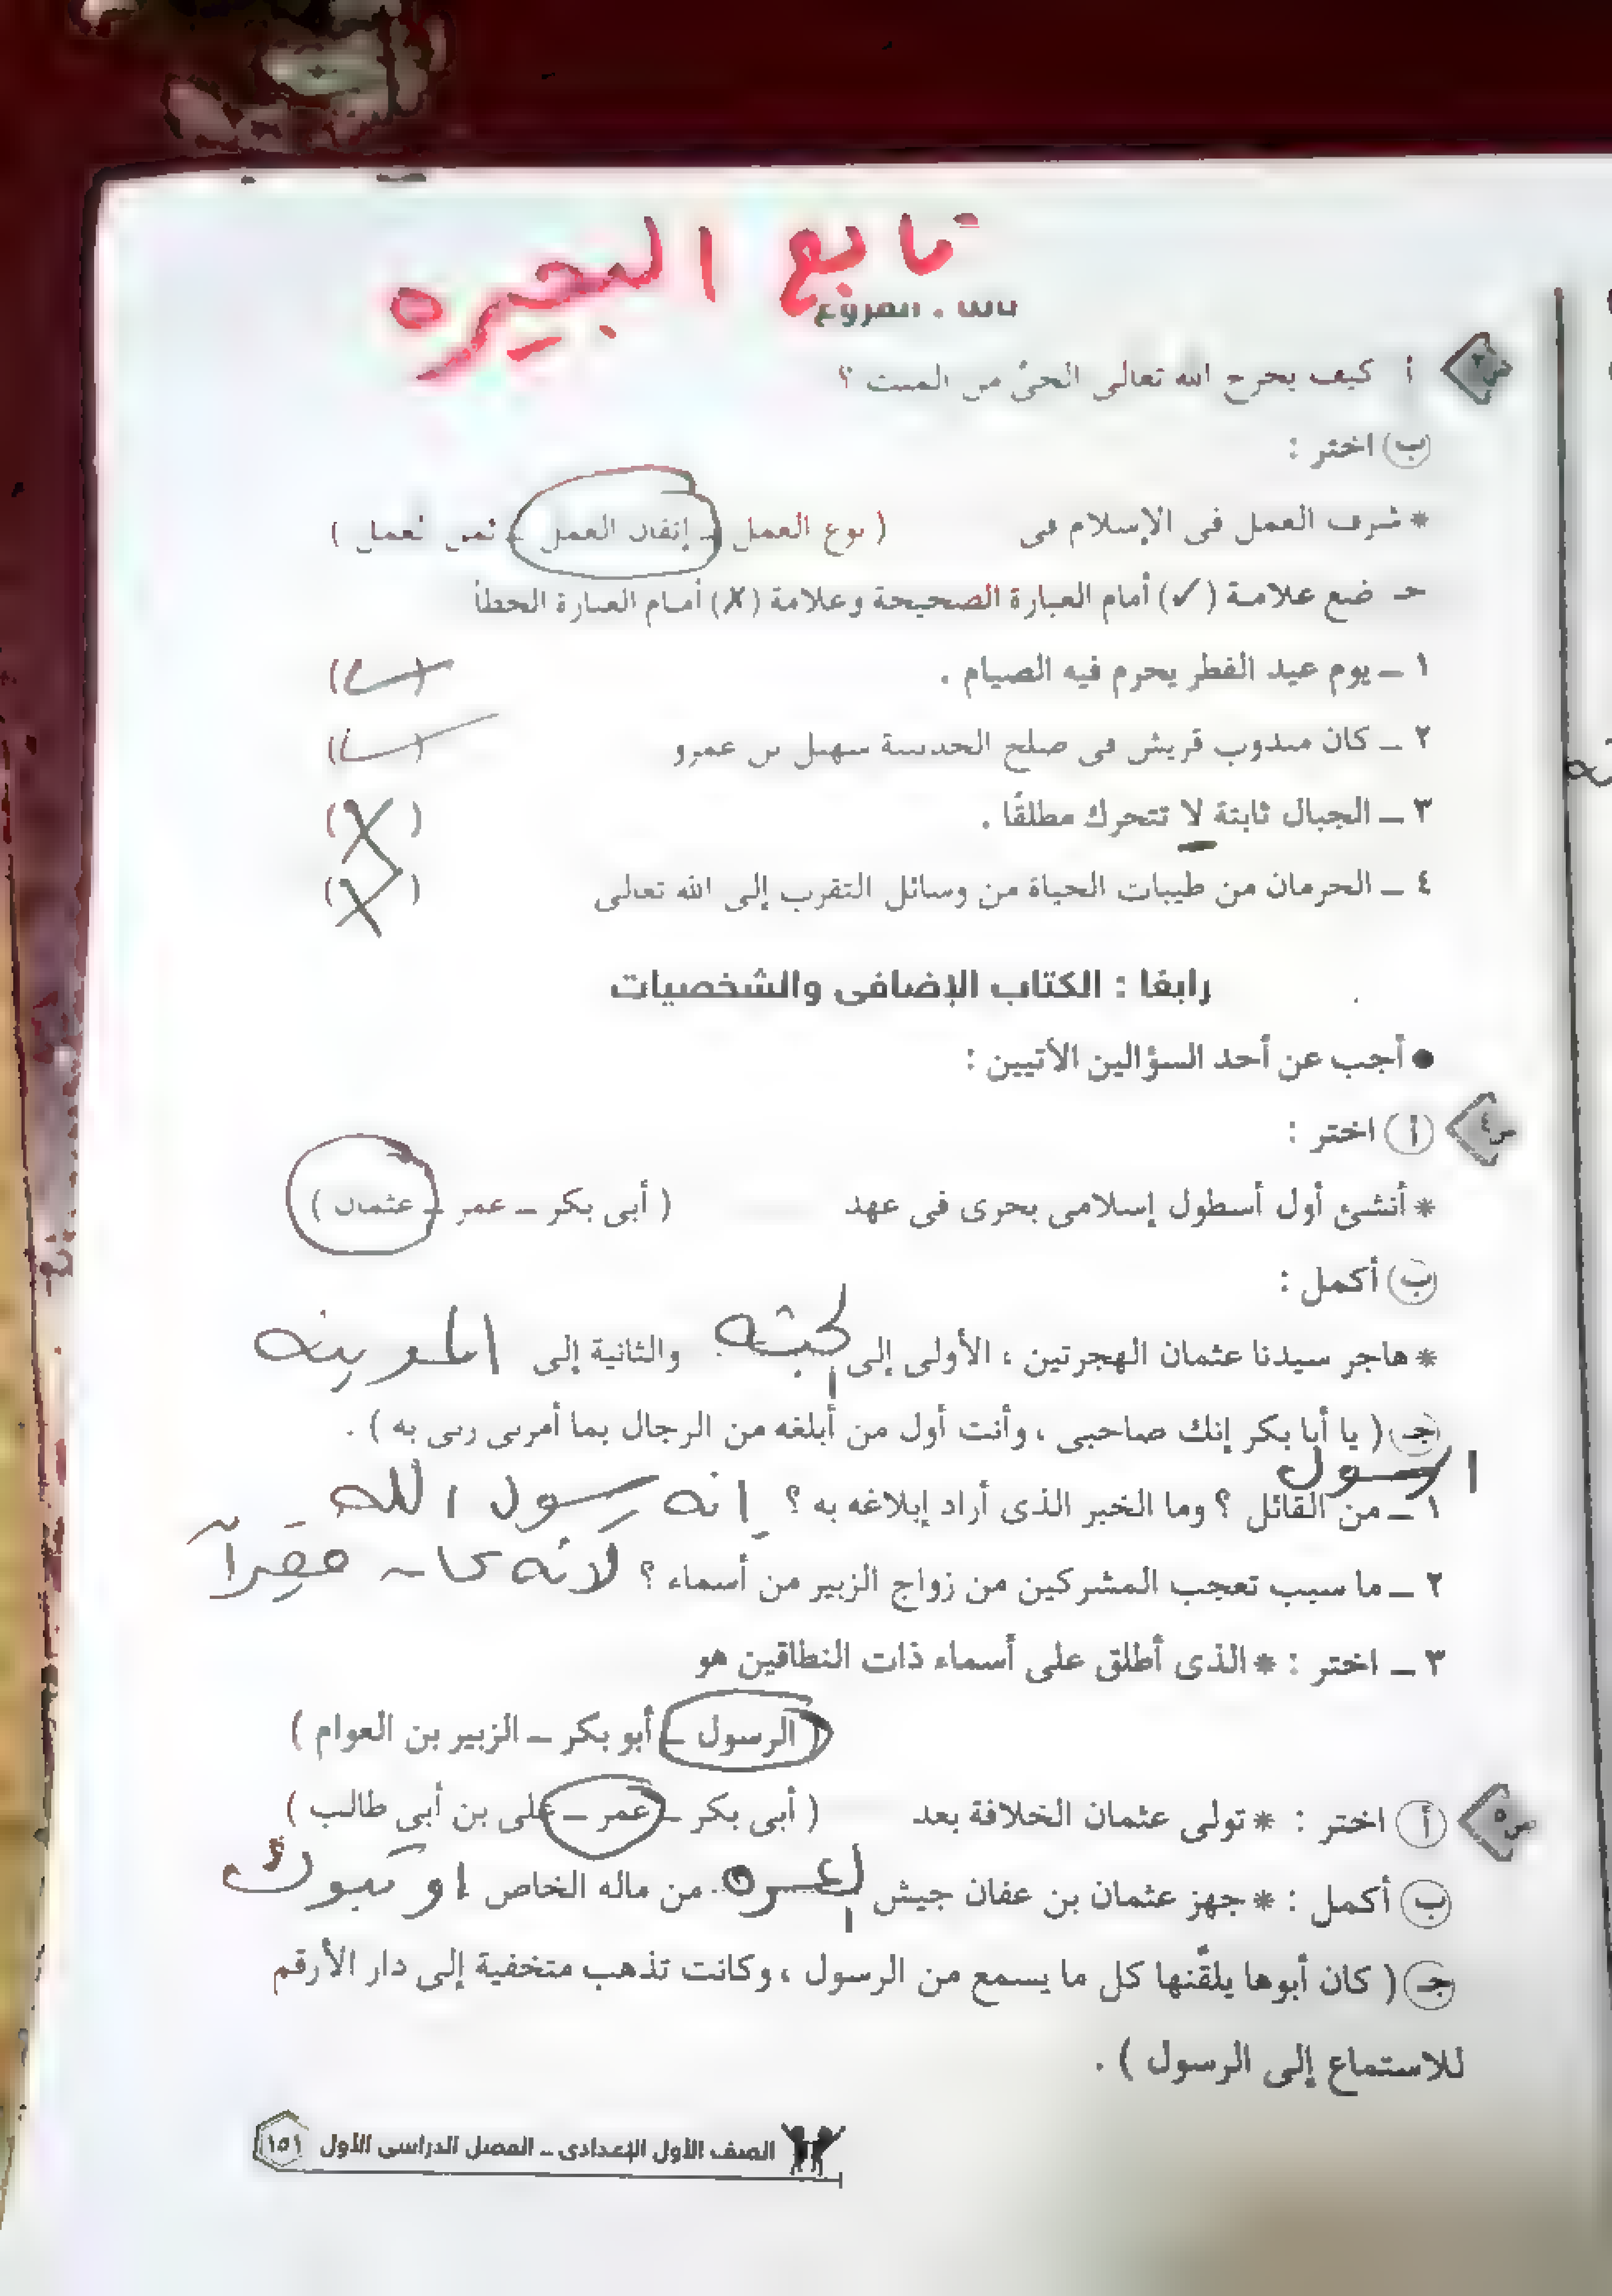 تابع البحيره
أ كيف يخرج الله تعالى الحىَّ من الميت ؟
(ب) اختر :
* شرف العمل فى الإسلام فى ( نوع العمل – إتقان العمل – ثمن العمل )
جـ ضع علامة (✓) أمام العبارة الصحيحة وعلامة (✗) أمام العبارة الخطأ
١ – يوم عيد الفطر يحرم فيه الصيام . (✓)
٢ – كان مندوب قريش فى صلح الحديبية سهيل بن عمرو (✓)
٣ – الجبال ثابتة لا تتحرك مطلقًا . (✗)
٤ – الحرمان من طيبات الحياة من وسائل التقرب إلى الله تعالى (✗)
رابعًا : الكتاب الإضافى والشخصيات
● أجب عن أحد السؤالين الآتيين :
س٤ (أ) اختر :
* أنشئ أول أسطول إسلامى بحرى فى عهد ( أبى بكر – عمر – عثمان )
(ب) أكمل :
* هاجر سيدنا عثمان الهجرتين ، الأولى إلى والثانية إلى المدينه
(جـ) ( يا أبا بكر إنك صاحبى ، وأنت أول من أبلغه من الرجال بما أمرنى ربى به ) .
الرسول
١ – من القائل ؟ وما الخبر الذى أراد إبلاغه به ؟ انه رسول الله
٢ – ما سبب تعجب المشركين من زواج الزبير من أسماء ؟ لانه كان فقيرآ
٣ – اختر : * الذى أطلق على أسماء ذات النطاقين هو
( الرسول – أبو بكر – الزبير بن العوام )
س٥ (أ) اختر : * تولى عثمان الخلافة بعد ( أبى بكر – عمر – على بن أبى طالب )
(ب) أكمل : * جهز عثمان بن عفان جيش من ماله الخاص او تبوك
(جـ) ( كان أبوها يلقَّنها كل ما يسمع من الرسول ، وكانت تذهب متخفية إلى دار الأرقم
للاستماع إلى الرسول ) .
الصف الأول الإعدادى – الفصل الدراسى الأول ١٥١